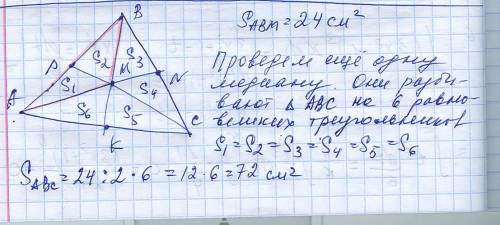 B
S_ABM = 24 см²
S₂
S₃
P
M
N
S₁
S₄
A
S₆
S₅
K
C
Проведем ещё одну
медиану. Они разби-
вают △ABC на 6 равно-
великих треугольников!
S₁ = S₂ = S₃ = S₄ = S₅ = S₆
S_ABC = 24 : 2 · 6 = 12 · 6 = 72 см²